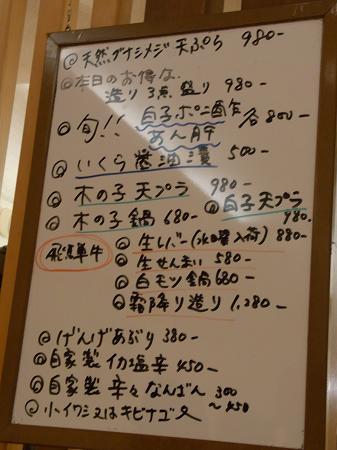 ◎天然ブナシメジ天ぷら 980-
◎本日のお得な
造り3点盛り 980-
◎旬!! 白子ポン酢
あん肝 各800-
◎いくら醤油漬 500-
◎木の子天プラ 980-
◎木の子鍋 680-
◎白子天プラ
980-
飛騨牛
◎生レバー(水曜入荷) 880-
◎生せんまい 580-
◎白モツ鍋 680-
◎霜降り造り 1,280-
◎げんげあぶり 380-
◎自家製イカ塩辛 450-
◎自家製辛々なんばん 300
◎小イワシ又はキビナゴ
～450